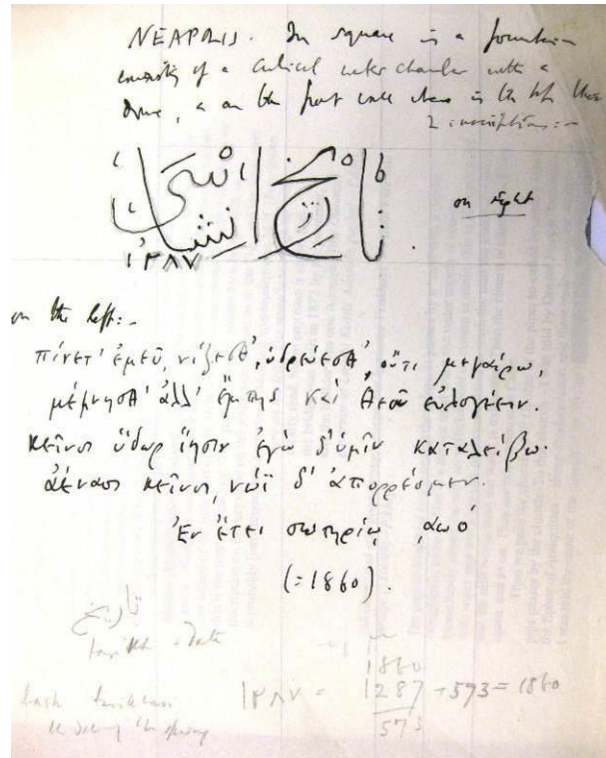 NEAPOLIS. In square is a fountain
consisting of a cubical water chamber with a
dome, & on the front wall
2 inscriptions :-
تاريخ انشاسى
١٢٨٧
on right
on the left:-
πίνετ' ἐμεῦ, νίζεσθ', ὑδρεύεσθ', οὔτι μεγαίρω,
μέμνησθ' ἀλλ' ἔμπης καὶ θεοῦ εὐλογέειν.
κεῖνος ὕδωρ ἵησιν ἐγὼ δ' ὑμῖν καταλείβω·
ἀέναος κεῖνος, νώϊ δ' ἀπορρέομεν.
Ἐν ἔτει σωτηρίῳ αωό
(=1860).
تاريخ
tarikh = date
1860
١٢٨٧ = 1287 + 573 = 1860
573